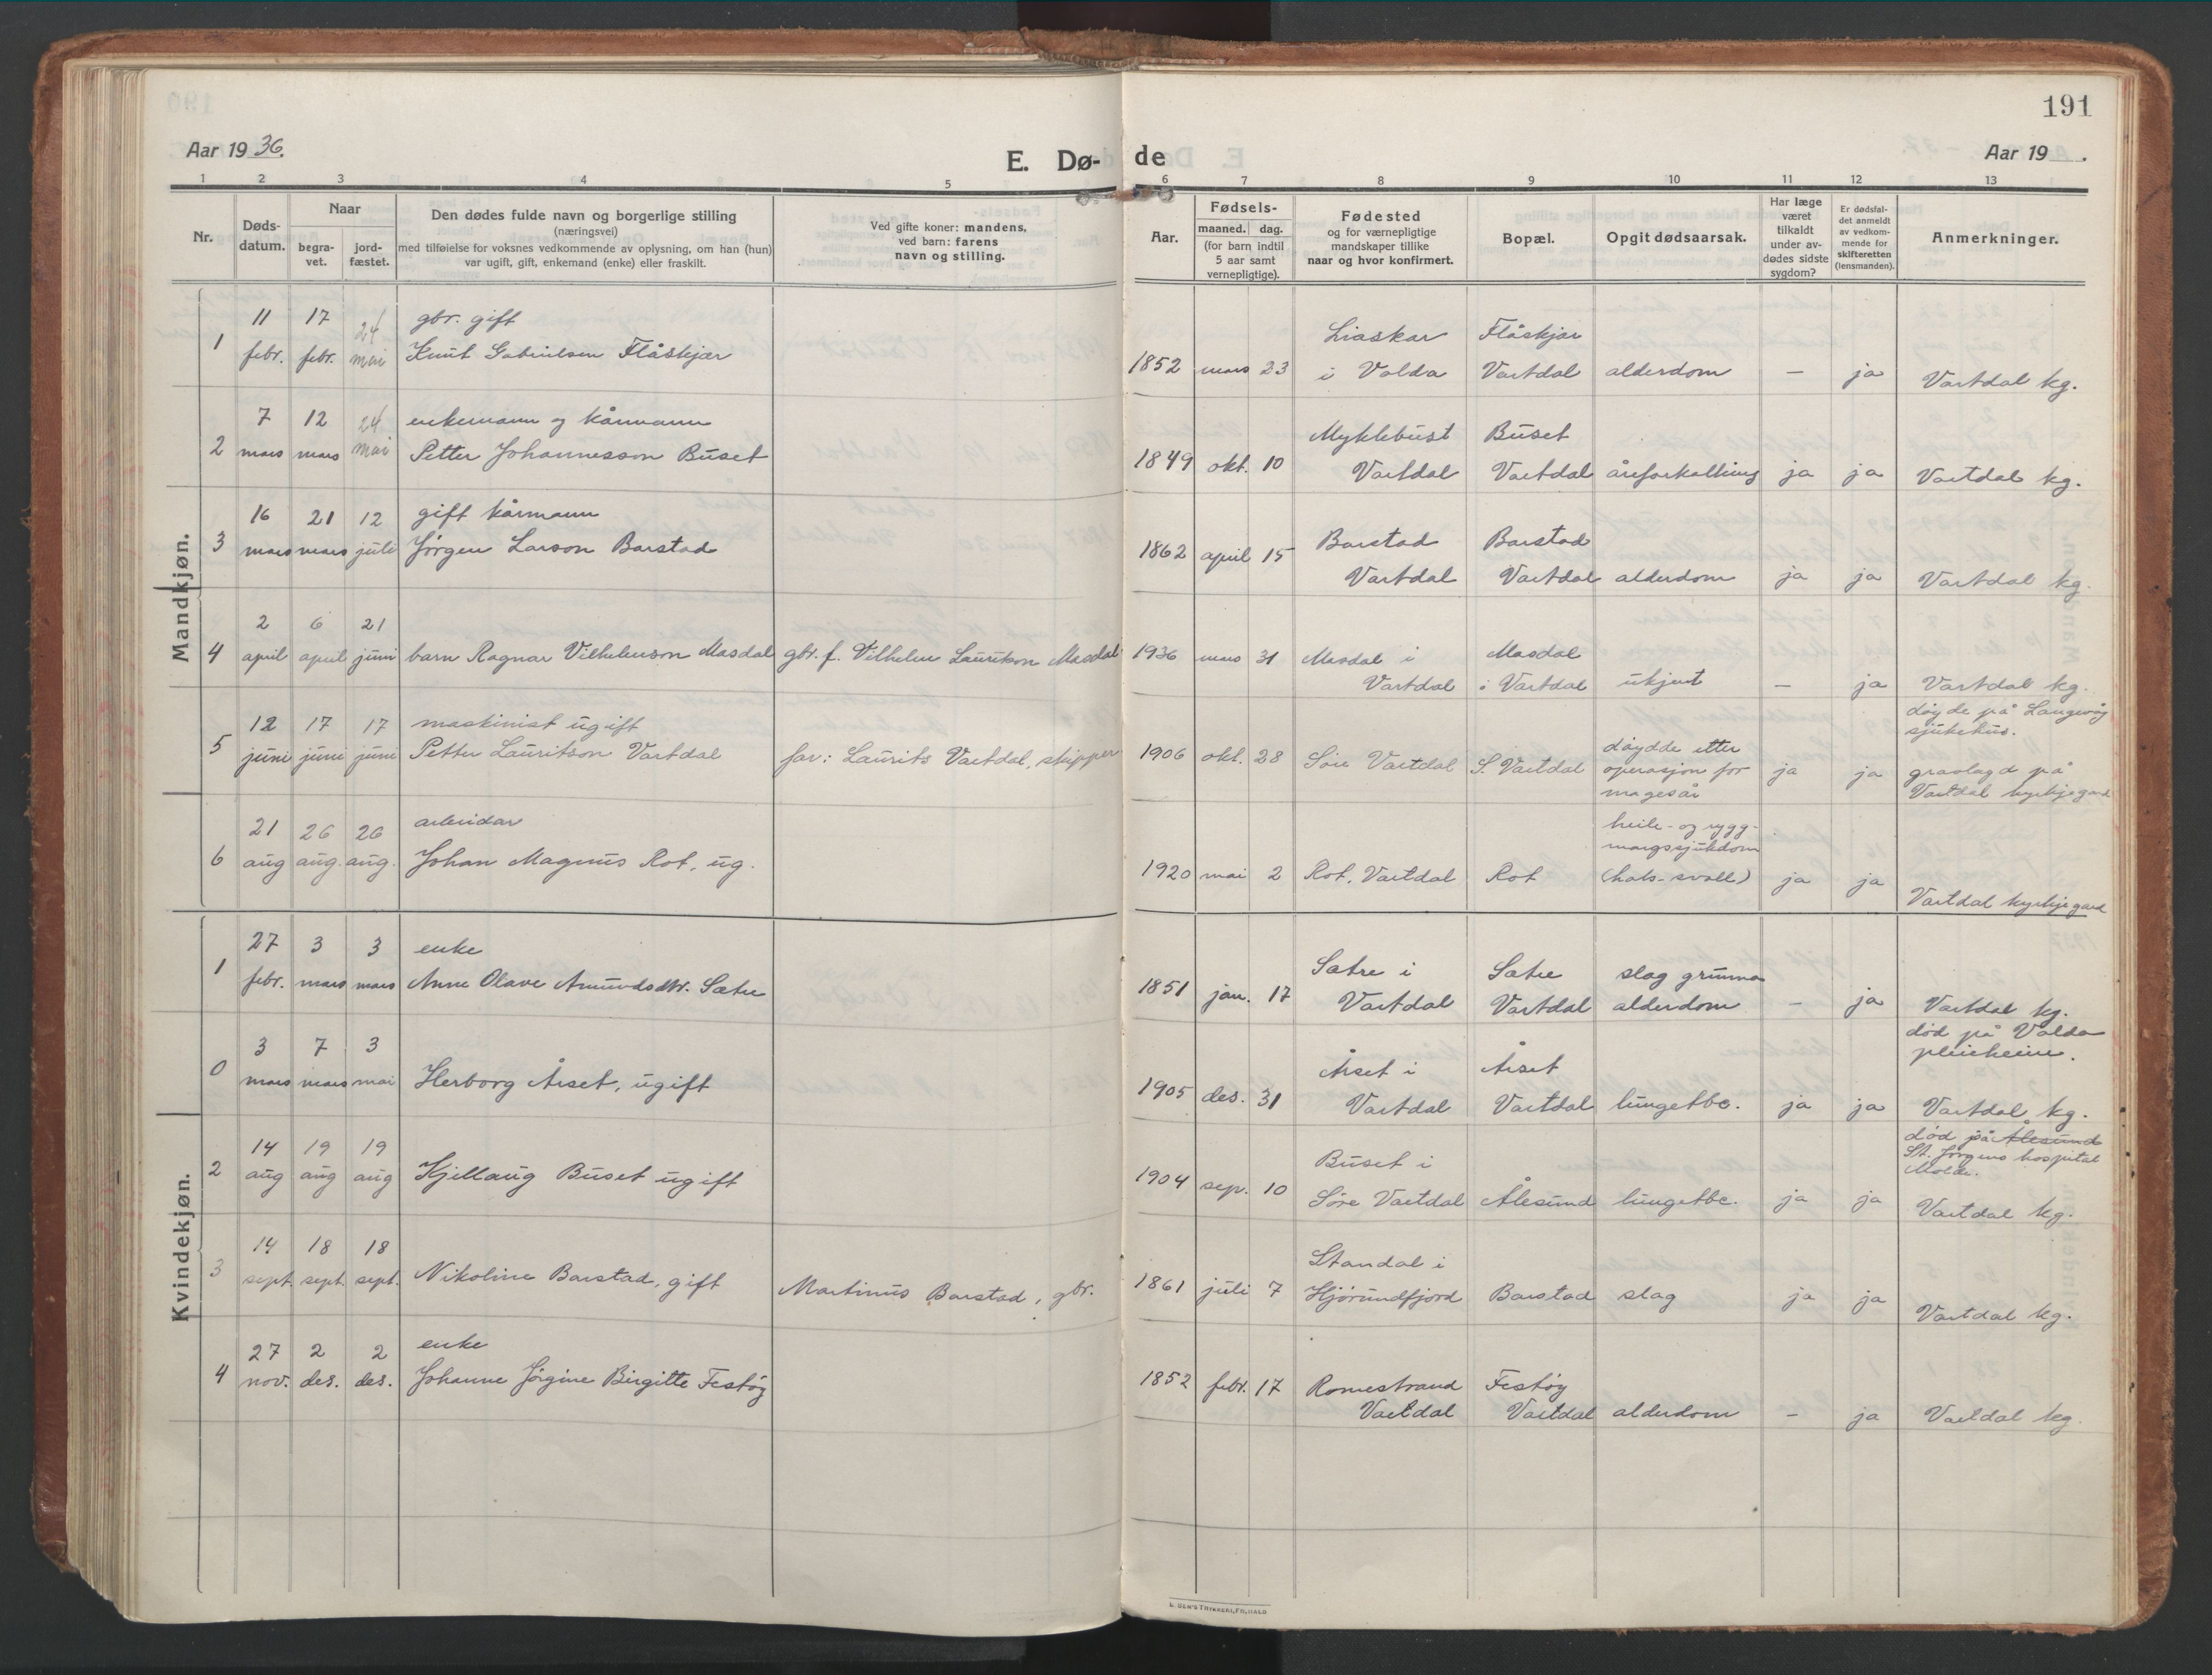 191
Aar 19 36.
E. Dø-
de
Aar 19 .
1 2 3 4 5 6 7 8 9 10 11 12 13
Nr.
Døds-
datum.
Naar
begra-
vet.
jord-
fæstet.
Den dødes fulde navn og borgerlige stilling
(næringsvei)
med tilføielse for voksnes vedkommende av oplysning, om han (hun)
var ugift, gift, enkemand (enke) eller fraskilt.
Ved gifte koner: mandens,
ved barn: farens
navn og stilling.
Aar.
Fødsels-
maaned. dag.
(for barn indtil
5 aar samt
vernepligtige).
Fødested
og for værnepligtige
mandskaper tillike
naar og hvor konfirmert.
Bopæl.
Opgit dødsaarsak.
Har læge
været
tilkaldt
under av-
dødes sidste
sygdom?
Er dødsfal-
det anmeldt
av vedkom-
mende for
skifteretten
(lensmanden).
Anmerkninger.
Mandkjøn.
11 17 24 gbr. gift Liaskar Flåskjær
1 febr. febr. mai Knut Gabrielsen Flåskjær 1852 mars 23 i Volda Vartdal alderdom — ja Vartdal kg.
7 12 24 enkemann og kårmann Myklebust Buset
2 mars mars mai Petter Johannesson Buset 1849 okt. 10 Vartdal Vartdal åreforkalking ja ja Vartdal kg.
16 21 12 gift kårmann Barstad Barstad
3 mars mars juli Jørgen Larson Barstad 1862 april 15 Vartdal Vartdal alderdom ja ja Vartdal kg.
2 6 21 Masdal
4 april april juni barn Ragnar Vilhelmson Masdal gbr. f. Vilhelm Lauritson Masdal 1936 mars 31 Masdal i
Vartdal i Vartdal ukjent — ja Vartdal kg.
12 17 17 maskinist ugift døyde på Langevåg
sjukehus.
5 juni juni juni Petter Lauritson Vartdal far: Laurits Vartdal, skipper 1906 okt. 28 Søre Vartdal S. Vartdal døydde etter
operasjon for ja ja gravlagd på
magesår Vartdal kyrkjegard
21 26 26 arbeidar heile- og rygg-
margssjukdom
6 aug aug. aug. Johan Magnus Rot, ug. 1920 mai 2 Rot, Vartdal Rot (hals-svoll) ja ja
Vartdal kyrkjegard
Kvindekjøn.
27 3 3 enke Sætre i Sætre slag grunna
1 febr. mars mars Anne Olave Amundsdtr. Sætre 1851 jan. 17 Vartdal Vartdal alderdom — ja Vartdal kg.
3 7 3 Årset i Årset død på Volda
pleieheim.
0 mars mars mai Herborg Årset, ugift 1905 des. 31 Vartdal Vartdal lungetbc. ja ja Vartdal kg.
14 19 19 Buset i død på Ålesund
St. Jørgens hospital
Molde.
2 aug aug aug Kjellaug Buset ugift 1904 sep. 10 Søre Vartdal Ålesund lungetbc. ja ja Vartdal kg.
14 18 18 Standal i
3 sept. sept. sept. Nikoline Barstad, gift Martinus Barstad, gbr. 1861 juli 7 Hjørundfjord Barstad slag ja ja Vartdal kg.
27 2 2 enke
4 nov. des. des. Johanne Jørgine Birgitte Festøy 1852 febr. 17 Romestrand Festøy
Vartdal Vartdal alderdom — ja Vartdal kg.